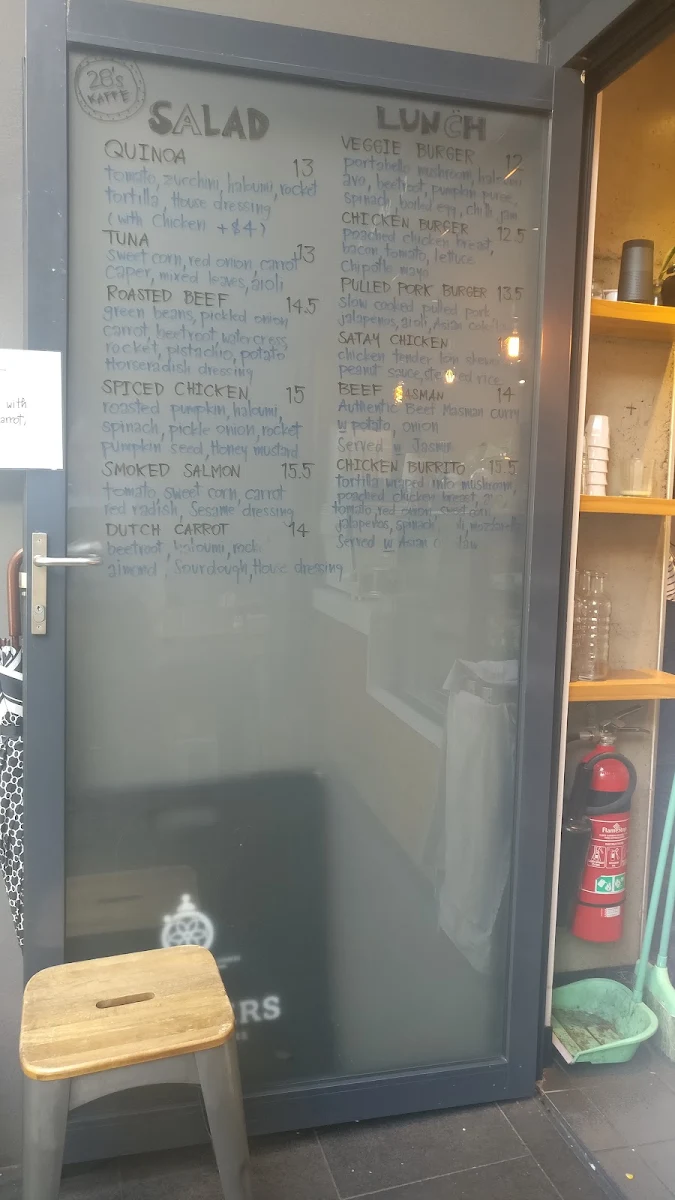 28's
KAFFE
SALAD
QUINOA 13
tomato, zucchini, haloumi, rocket
tortilla, House dressing
(with Chicken +$4)
TUNA 13
sweet corn, red onion, carrot
Caper, mixed leaves, aioli
ROASTED BEEF 14.5
green beans, pickled onion
carrot, beetroot, watercress
rocket, pistachio, potato
Horseradish dressing
SPICED CHICKEN 15
roasted pumpkin, haloumi,
spinach, pickle onion, rocket
pumpkin seed, Honey mustard
SMOKED SALMON 15.5
tomato, sweet corn, carrot
red radish, Sesame dressing
DUTCH CARROT 14
beetroot, haloumi,
almond, Sourdough, House dressing
LUNCH
VEGGIE BURGER 12
portabello mushroom,
avo, beetroot, pumpkin puree,
spinach, boiled egg, chilli jam
CHICKEN BURGER 12.5
poached chicken breast,
bacon, tomato, lettuce
Chipotle mayo
PULLED PORK BURGER 13.5
slow cooked pulled pork
jalapenos, aioli, Asian
SATAY CHICKEN
chicken tender loin skewer
peanut sauce, steamed rice
BEEF 14
Authentic Beef Masman curry
w potato, onion
Served w
CHICKEN BURRITO 15.5
tortilla wraped into mushroom,
poached chicken breast,
tomato, red onion, sweet corn,
jalapenos, spinach
Served w Asian
with